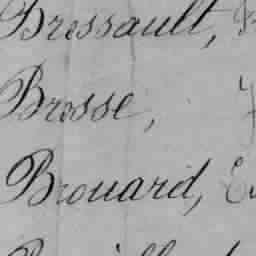 Bressault,
Brosse,
Brouard,